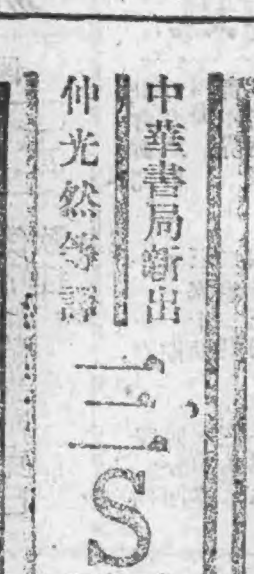 中華書局新出
仲光然等譯
三S